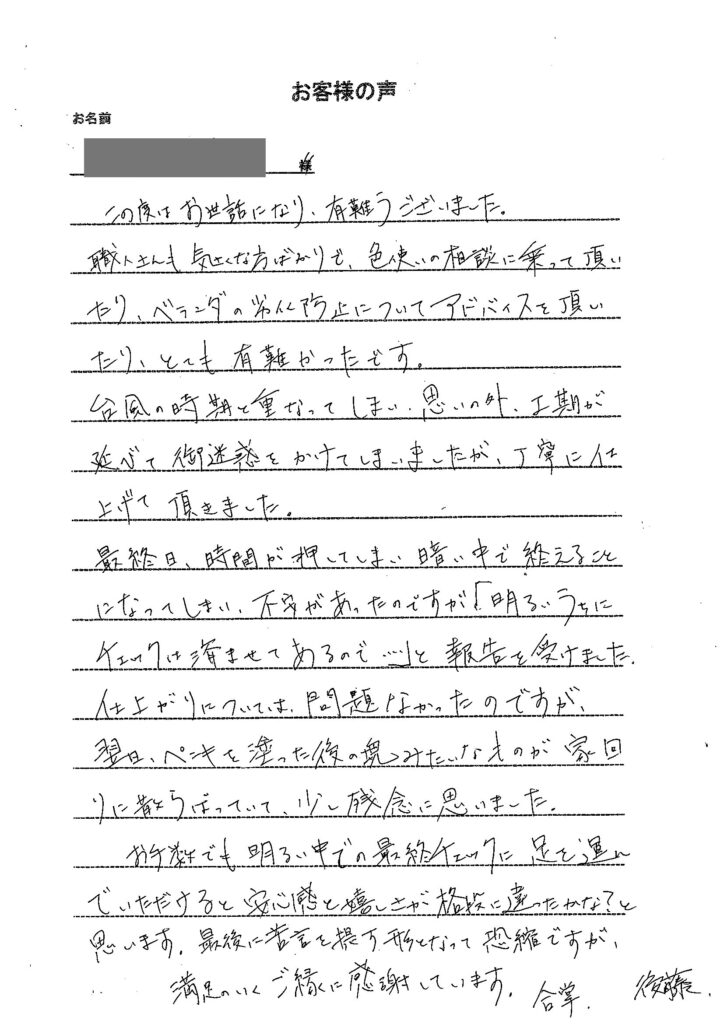 お客様の声
お名前
様
この度はお世話になり、有難うございました。
職人さんも気さくな方ばかりで、色使いの相談に乗って頂い
たり、ベランダの劣化防止についてアドバイスを頂い
たり、とても有難かったです。
台風の時期と重なってしまい、思いの外、工期が
延べて御迷惑をかけてしまいましたが、丁寧に仕
上げて頂きました。
最終日、時間が押してしまい暗い中で終えること
になってしまい、不安があったのですが「明るいうちに
チェックは済ませてあるので…」と報告を受けました。
仕上がりについては、問題なかったのですが、
翌日、ペンキを塗った後の塊みたいなものが家回
りに散らばっていて、少し残念に思いました。
お手数でも明るい中での最終チェックに足を運ん
でいただけると安心感と嬉しさが格段に違ったかな？と
思います。最後に苦言を提す形となって恐縮ですが、
満足のいくご縁に感謝しています。合掌. 後藤.